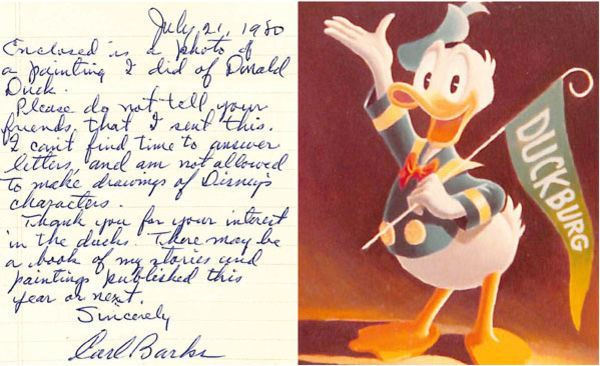 July 21, 1980
Enclosed is a photo of
a painting I did of Donald
Duck.
Please do not tell your
friends that I sent this.
I can't find time to answer
letters, and am not allowed
to make drawings of Disney's
characters.
Thank you for your interest
in the ducks. There may be
a book of my stories and
paintings published this
year or next.
Sincerely
Carl Barks
DUCKBURG